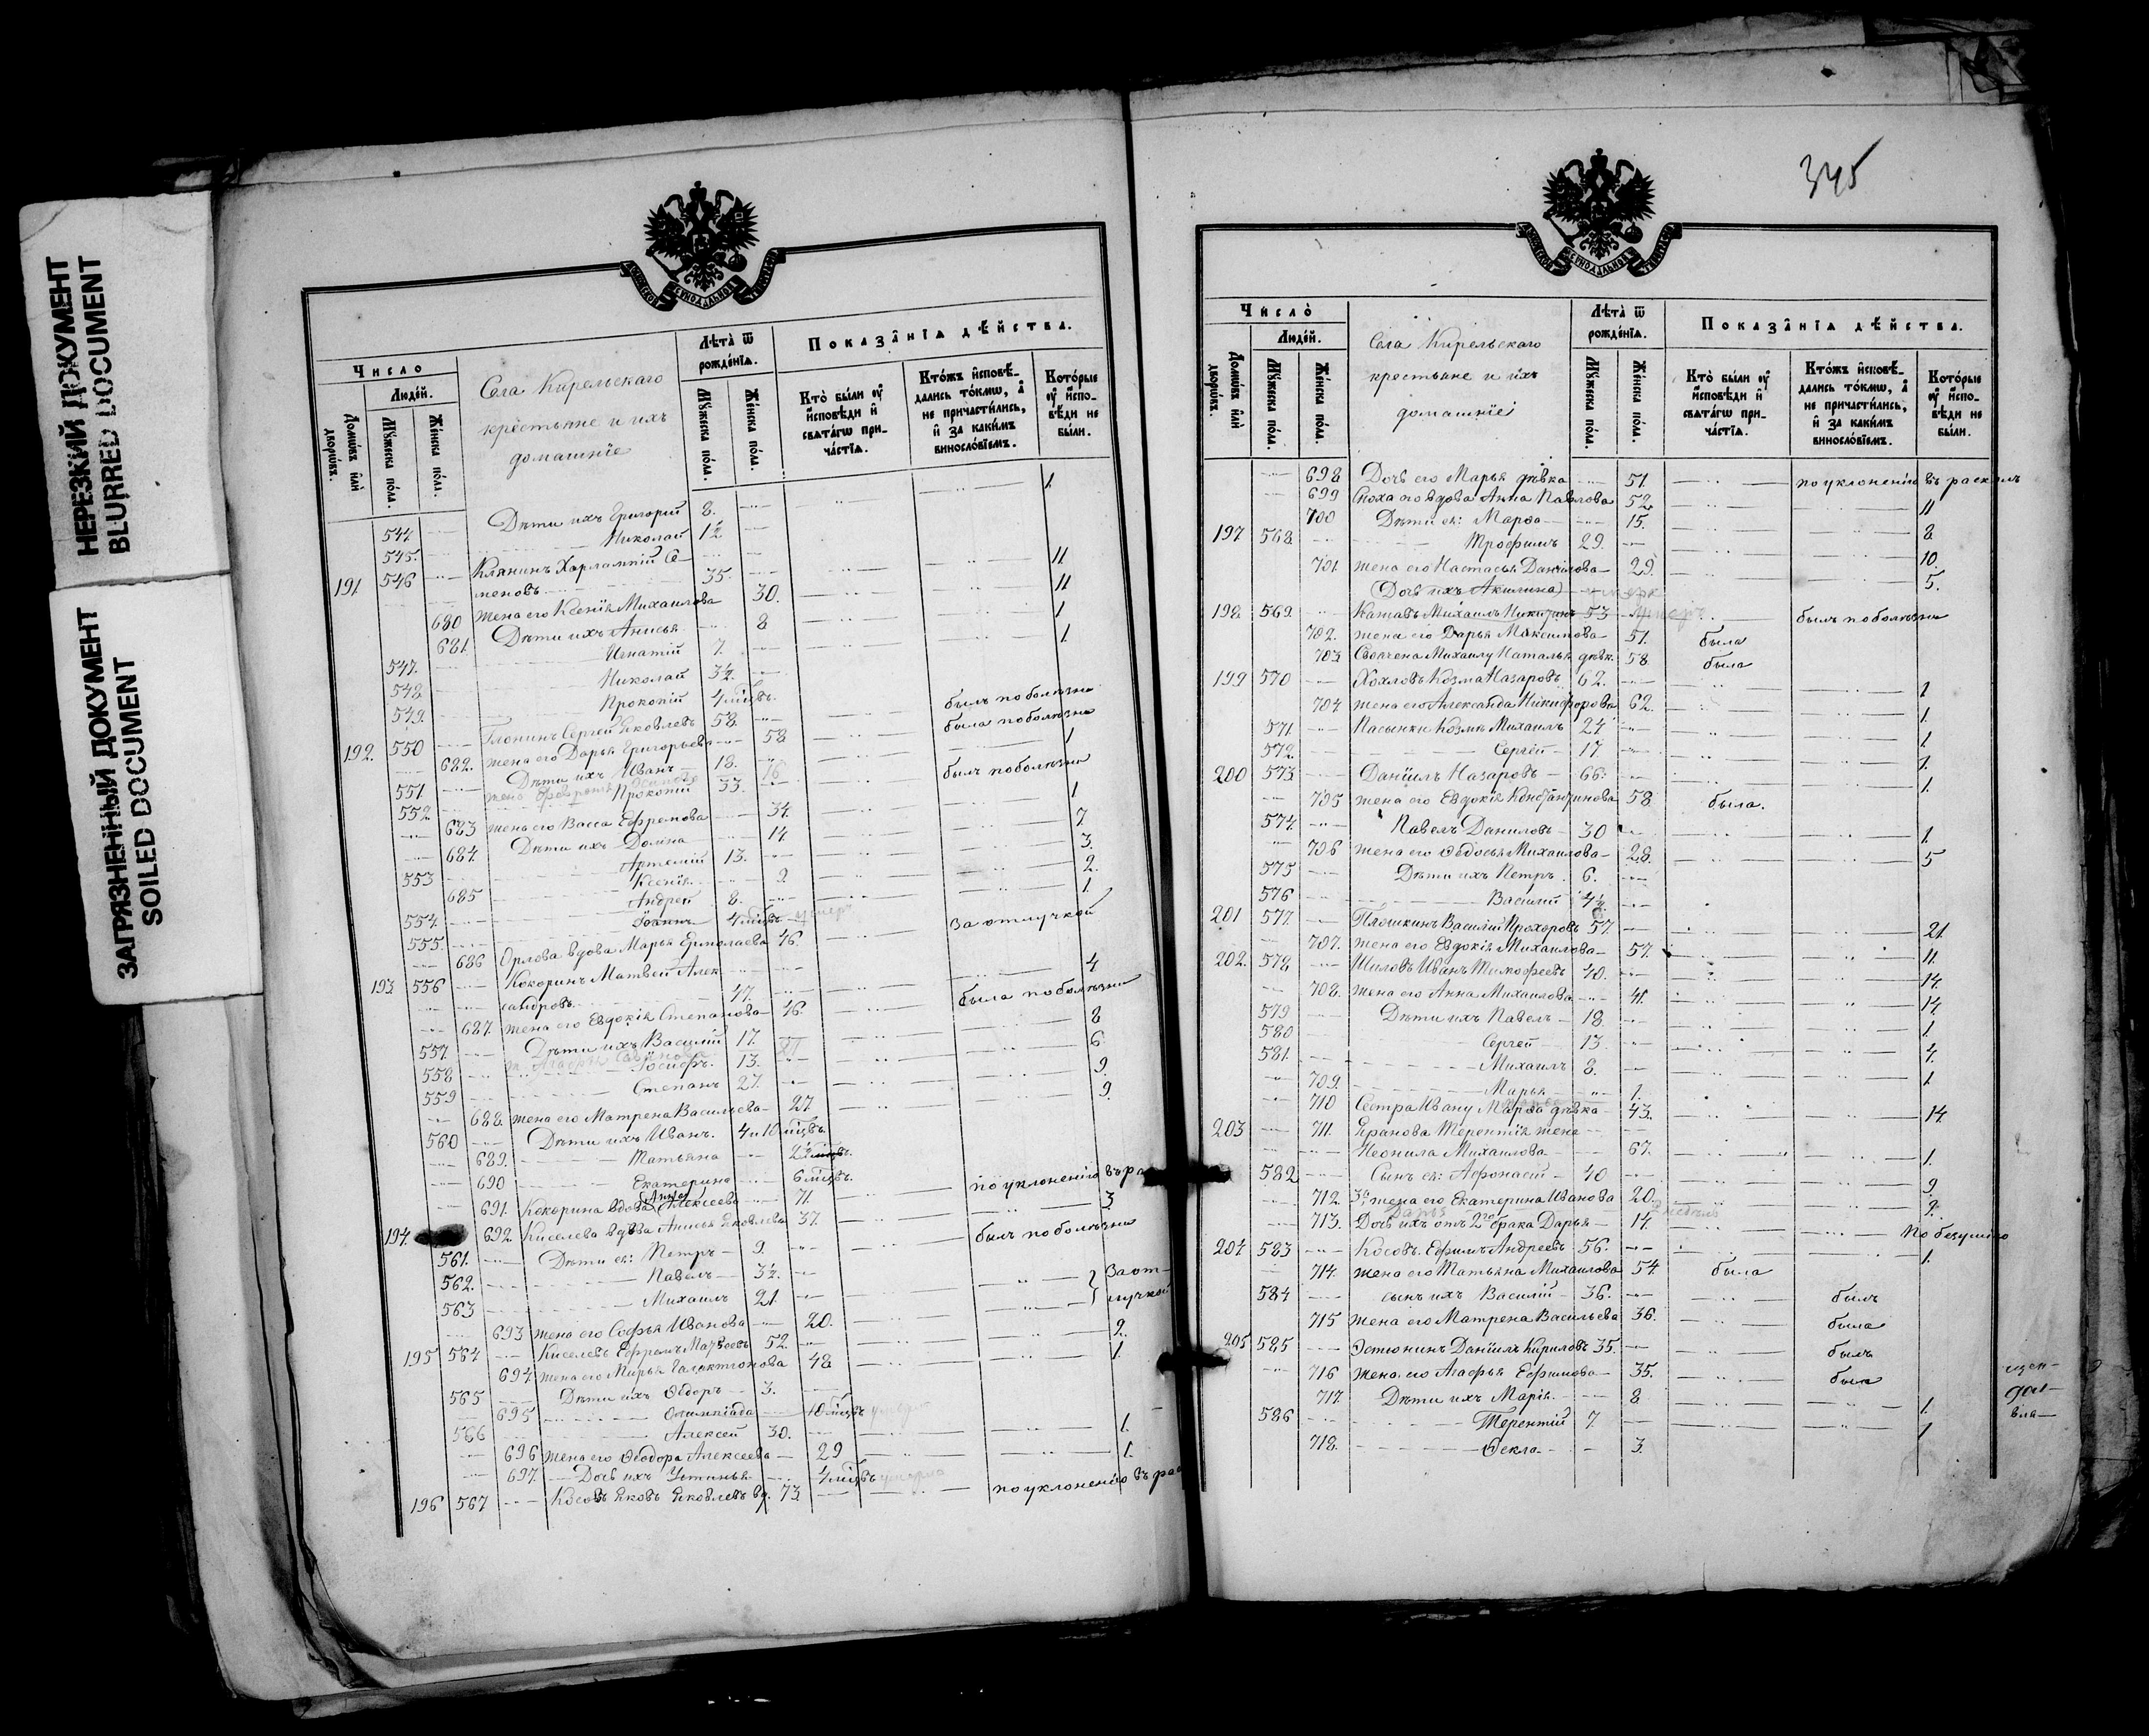 НЕРЕЗКИЙ ДОКУМЕНТ
BLURRED DOCUMENT
ЗАГРЯЗНЕННЫЙ ДОКУМЕНТ
SOILED DOCUMENT
Число
Людей.
Домѡвъ или дворѡвъ.
Мꙋжеска пола.
Женска пола.
Села Кирельскаго
крестьяне и ихъ
домашнiе
Лѣта ѿ рожденїѧ.
Мꙋжеска пола.
Женска пола.
Показанїѧ дѣйства.
Кто были оу исповѣди и свѧтагѡ причастїѧ.
Ктожъ исповѣдались токмѡ, а не причастились, и за какимъ винословїемъ.
Которые оу исповѣди не были.
544 Дѣти ихъ Григорiй 8. 1.
545. Николай 12
191 546 Клянинъ Харлампiй Се-
меновъ 35. 11
680 жена его Ксенiя Михаилова 30. 11
681. Дѣти ихъ Анисья 8 1
547. Игнатiй 7. 1.
548. Николай 3½
549. Прокопiй 4 мѣцъ.
192. 550 Глонинъ Сергей Яковлевъ 58. былъ по болѣзни
682. жена его Дарья Григорьева 58 была по болѣзни
551. Дѣти ихъ Иванъ 18. 1
552 Прокопiй 33. былъ по болѣзни
683 жена его Васса Ефремова 34. 1
684. Дѣти ихъ Домна 14 7
553 Артемiй 13. 3.
685 Ксенiя 9 2.
554. Андрей 8. 1
555. Iоаннъ 4 мѣцъ умеръ
686 Орлова вдова Марья Ермолаева 46. за отлучкой
193 556 Кокоринъ Матвей Алек
сандровъ 47. 4
687. жена его Евдокiя Степанова 46. была по болѣзни
557. Дѣти ихъ Василiй 17. 8
558 Iосифъ 13. 6
559 Степанъ 27. 9.
688. жена его Матрена Васильева 27 9.
560 Дѣти ихъ Иванъ. 4 и 10 мѣцъ.
689. Татьяна 2½
690 Екатерина 6 мѣцъ.
691. Кокорина вдова Анна Алексеева 71. по уклоненiю въ ра
194. 692. Киселева вдова Анисья Яковлева 37. 3
561. Дѣти ея: Петръ 9. былъ по болѣзни
562. Павелъ 3½.
563 Михаилъ 21. За от-
693 жена его Софья Иванова 20. лучкой
195 564 Киселевъ Ефремъ Матвеевъ 52. 9.
694. жена его Марья Галактiонова 48 1.
565 Дѣти ихъ Ѳедоръ 3.
695 Олимпiада 10 мѣцъ
566 Алексей 30. 1.
696 жена его Ѳеодора Алексеева 29 1.
697. Дочь ихъ Устинья 4 мѣцъ умерла
196 567 Косовъ Яковъ Яковлевъ вд. 73 по уклоненiю въ рас
345
Число
Людей.
Домѡвъ или дворѡвъ.
Мꙋжеска пола.
Женска пола.
Села Кирельскаго
крестьяне и ихъ
домашнiе
Лѣта ѿ рожденїѧ.
Мꙋжеска пола.
Женска пола.
Показанїѧ дѣйства.
Кто были оу исповѣди и свѧтагѡ причастїѧ.
Ктожъ исповѣдались токмѡ, а не причастились, и за какимъ винословїемъ.
Которые оу исповѣди не были.
698 Дочь его Марья дѣвка 51. по уклоненiю въ расколъ
699 Сноха его вдова Анна Павлова 52. 11
700 Дѣти ея: Марѳа 15. 8
197 568 Трофимъ 29. 10.
701. жена его Настасья Данилова 29. 5.
(Дочь ихъ Акилина)
198 569. Катавъ Михаилъ Никитинъ 53 умеръ былъ по болѣзни
702. жена его Дарья Максимова 51. была
703. Своячена Михаилу Наталья дѣвк. 58. была
199 570 Хохловъ Козма Назаровъ 62. 1
704. жена его Александа Никифорова 62. 1.
571 Пасынки Козмѣ Михаилъ 24 1
572. Сергей 17 1.
200 573 Данiилъ Назаровъ 66. 1.
705 жена его Евдокiя Константинова 58 была.
574. Павелъ Даниловъ 30 1.
706 жена его Ѳедосья Михаилова 28. 5
575 Дѣти ихъ Петръ 6.
576 Василiй 4½
201 577. Плошкинъ Василiй Прохоровъ 57. 21.
707. жена его Евдокiя Михаилова 57. 11.
202. 578 Шиловъ Иванъ Тимофеевъ 40. 14.
708. жена его Анна Михаилова 41. 14
579 Дѣти ихъ Павелъ 18 1.
580 Сергей 13. 4.
581. Михаилъ 8. 1
709. Марья 1.
710 Сестра Ивану Марѳа дѣвка 43. 14
203 711. Еранова Терентiя жена
Неонила Михаилова 67. 1.
582 Сынъ ея: Афонасiй 40 9
712. 3я жена его Екатерина Иванова 20. 2.
713. Дочь ихъ отъ 2го брака Дарья 14. По безумiю
204 583 Косовъ. Ефимъ Андреевъ 56. 1.
714. жена его Татьяна Михаилова 54 была
584 сынъ ихъ Василiй 36. былъ
715 жена его Матрена Васильева 36. была
205 585 Эстюнинъ Данiилъ Кириловъ 35. былъ
716 жена его Агафья Ефимова 35. была
717. Дѣти ихъ Марiя 8 1.
586 Терентiй 7 1
718. Ѳекла 3.